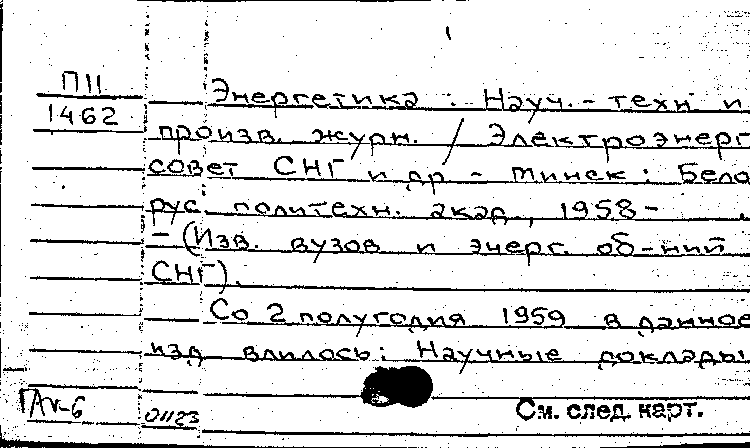 П11
1462
Энергетика : Науч.- техн и
произв. журн. / Электроэнерг
совет СНГ и др - Минск : Бела
рус. политехн. акад, 1958- .
- (Изв. вузов и энерг. об-ний
СНГ).
Со 2 полугодия 1959 в данное
изд влилось: Научные доклады
01123
См. след. карт.